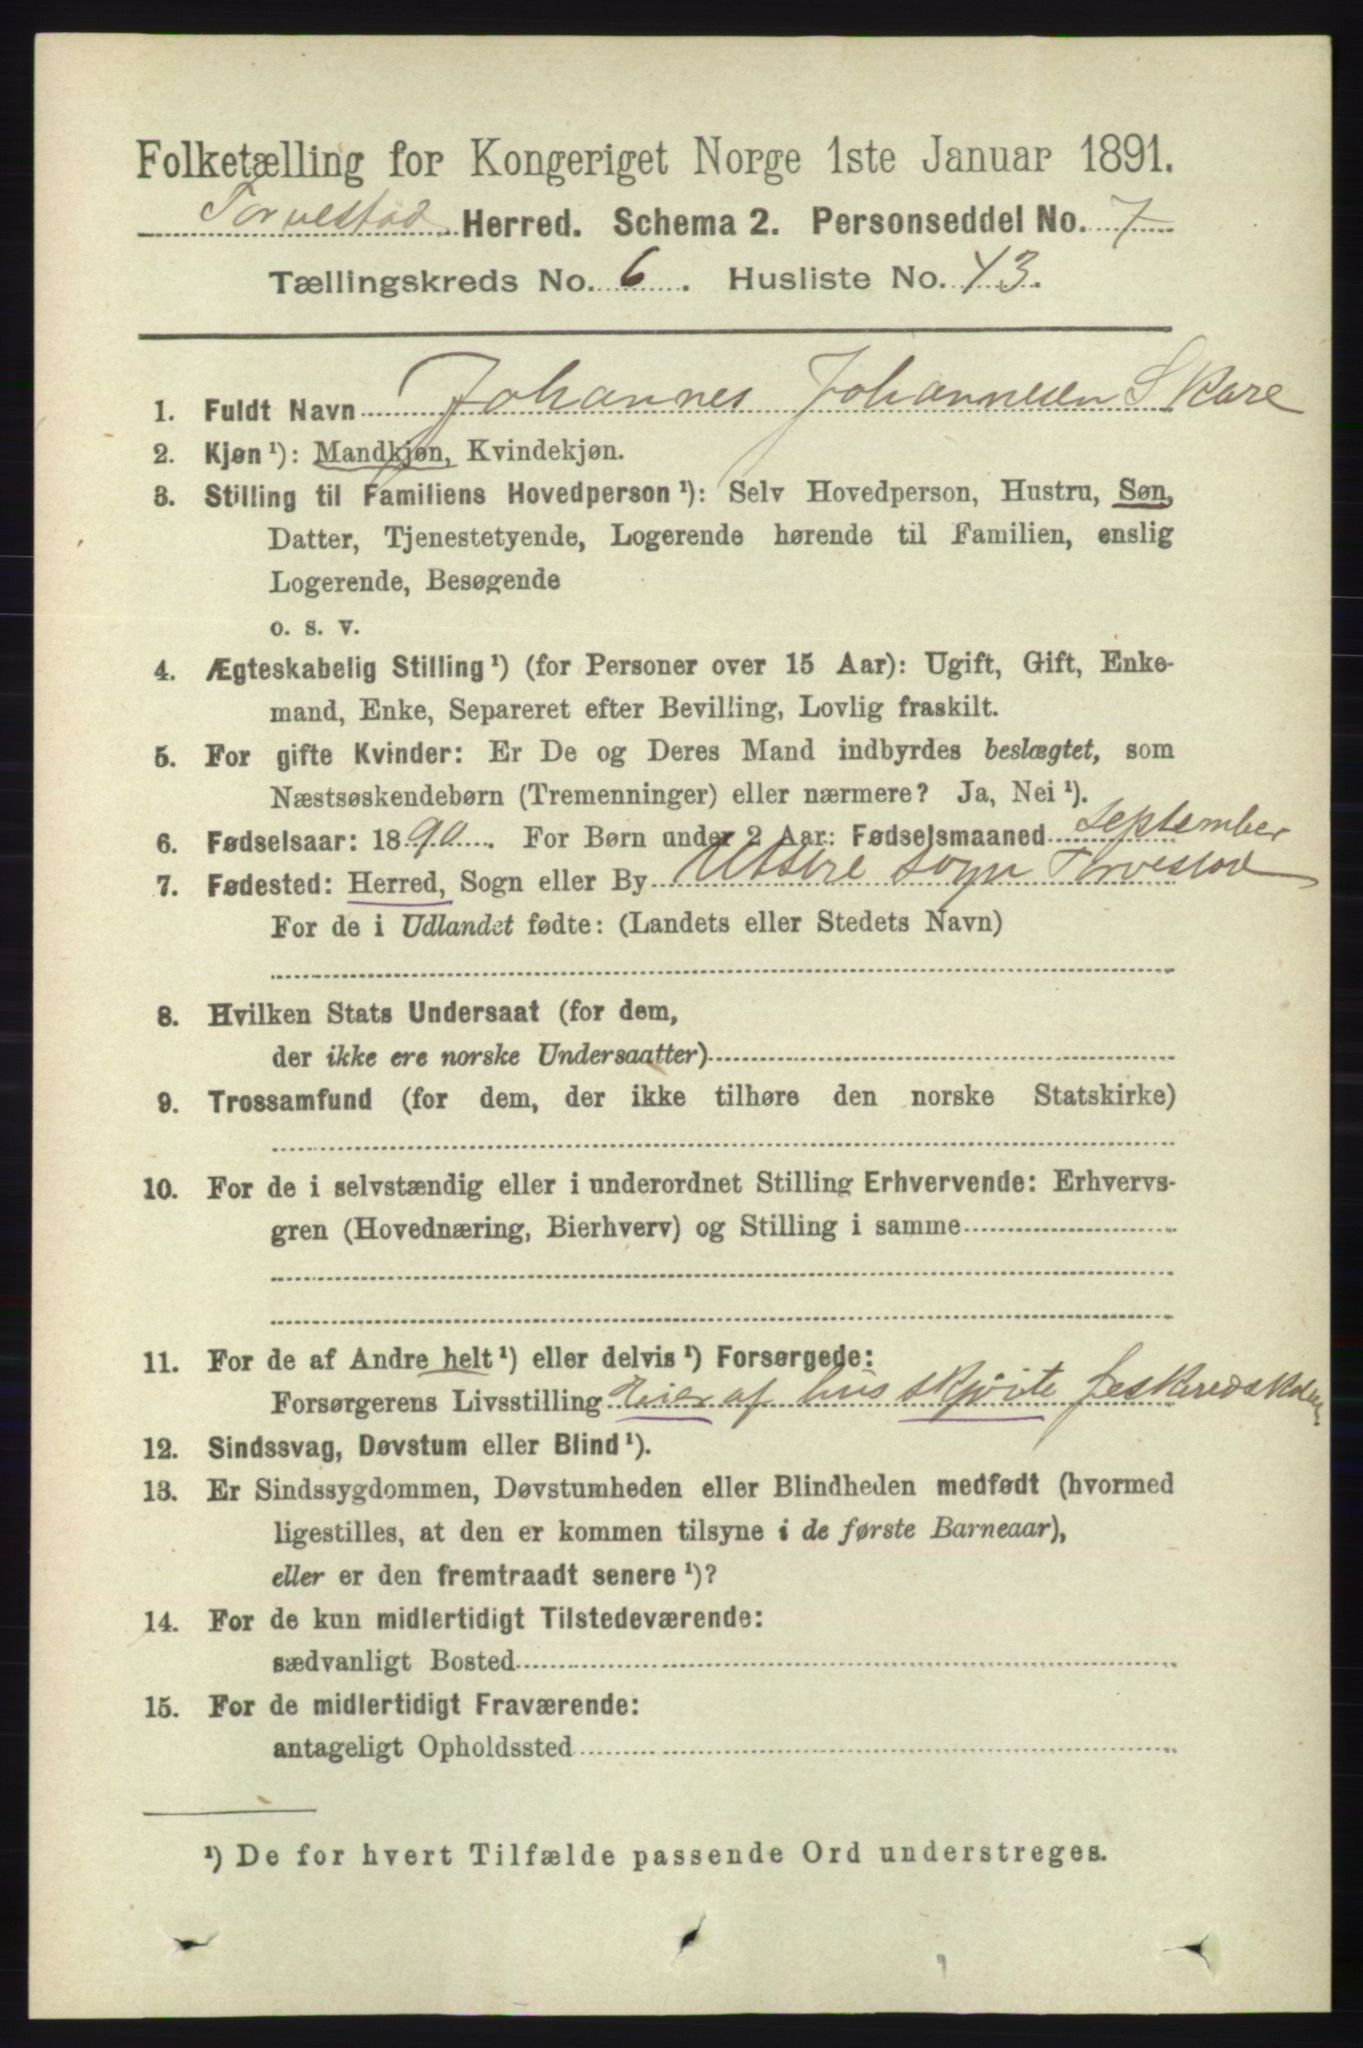 Folketælling for Kongeriget Norge 1ste Januar 1891.
Torvestad Herred. Schema 2. Personseddel No. 7
Tællingskreds No. 6. Husliste No. 43.
1. Fuldt Navn Johannes Johannesen Skare
2. Kjøn¹): Mandkjøn, Kvindekjøn.
3. Stilling til Familiens Hovedperson¹): Selv Hovedperson, Hustru, Søn,
Datter, Tjenestetyende, Logerende hørende til Familien, enslig
Logerende, Besøgende
o. s. v.
4. Ægteskabelig Stilling¹) (for Personer over 15 Aar): Ugift, Gift, Enke-
mand, Enke, Separeret efter Bevilling, Lovlig fraskilt.
5. For gifte Kvinder: Er De og Deres Mand indbyrdes beslægtet, som
Næstsøskendebørn (Tremenninger) eller nærmere? Ja, Nei¹).
6. Fødselsaar: 1890. For Børn under 2 Aar: Fødselsmaaned September
7. Fødested: Herred, Sogn eller By Utsire Sogn Torvestad
For de i Udlandet fødte: (Landets eller Stedets Navn)
8. Hvilken Stats Undersaat (for dem,
der ikke ere norske Undersaatter)
9. Trossamfund (for dem, der ikke tilhøre den norske Statskirke)
10. For de i selvstændig eller i underordnet Stilling Erhvervende: Erhvervs-
gren (Hovednæring, Bierhverv) og Stilling i samme
11. For de af Andre helt¹) eller delvis¹) Forsørgede:
Forsørgerens Livsstilling Eier af hus skjøite
12. Sindssvag, Døvstum eller Blind¹).
13. Er Sindssygdommen, Døvstumheden eller Blindheden medfødt (hvormed
ligestilles, at den er kommen tilsyne i de første Barneaar),
eller er den fremtraadt senere¹)?
14. For de kun midlertidigt Tilstedeværende:
sædvanligt Bosted
15. For de midlertidigt Fraværende:
antageligt Opholdssted
¹) De for hvert Tilfælde passende Ord understreges.